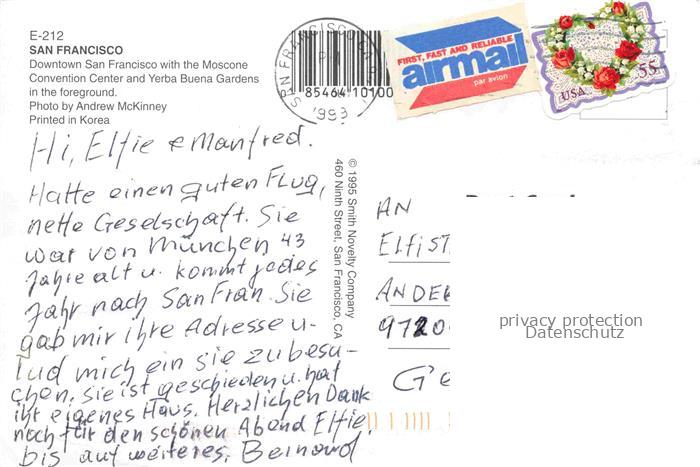 E-212
SAN FRANCISCO
Downtown San Francisco with the Moscone
Convention Center and Yerba Buena Gardens
in the foreground.
Photo by Andrew McKinney
Printed in Korea
SAN FRANCISCO
1999
85464 10100
FIRST, FAST AND RELIABLE
airmail
par avion
USA
55
Hi, Elfie & Manfred.
Hatte einen guten Flug,
nette Geselschaft. Sie
war von München 43
Jahre alt u. kommt jedes
Jahr nach San Fran. Sie
gab mir ihre Adresse u-
lud mich ein sie zu besu-
chen. Sie ist geschieden u. hat
ihr eigenes Haus. Herzlichen Dank
noch für den schönen Abend Elfie.
bis auf weiteres, Bernard
© 1995 Smith Novelty Company
460 Ninth Street, San Francisco, CA
AN
Elfi ST
AN DER
9720
Ge
privacy protection
Datenschutz